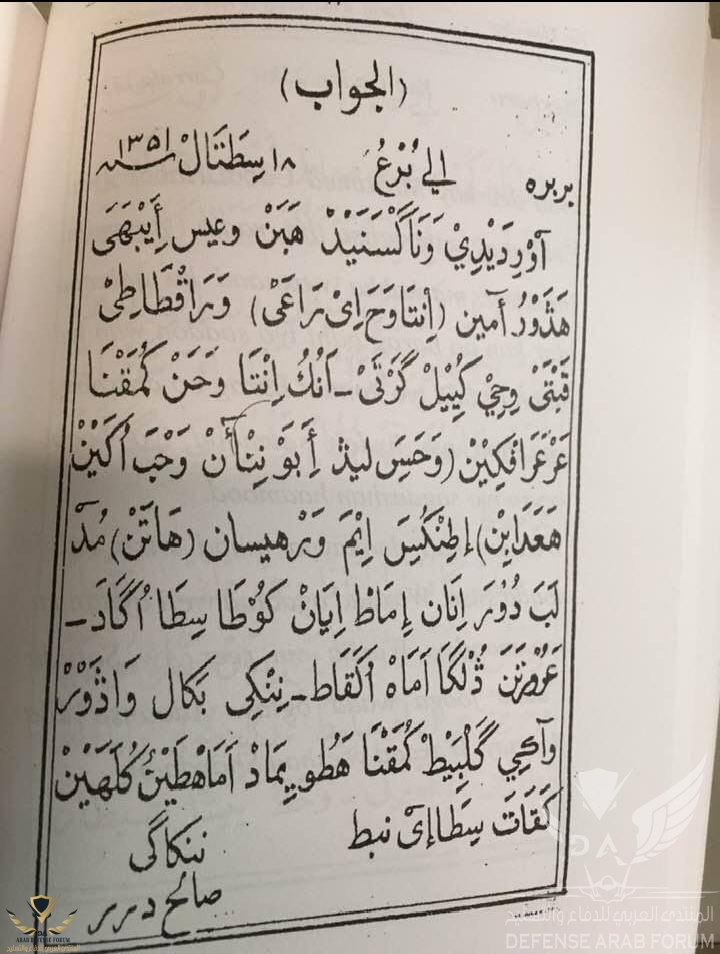 (الجواب)
بربره إلي بُرْعُ ١٨ سِطَتَالْ سنة ١٣٥١
آوْرِدَيْدِيْ وَنَاگْسَنَيْدْ هَبَنْ وعيس أَيْبَهَىَ
هَذَوْرُ أمين (إِنْتَاوَحَ اِىْ رَاعَىْ) وَرَاقْطَاطِىْ
قَبْتَىْ وِحِيْ كِيِيْلْ گَرَتَىْ - اَنُكُ اِنْتَا وَحَنْ كُمَقْنَا
عَرْعَرَافَكِيْنْ (وَحَسَ لَيڎْ أَبَوْ نِنْأَنْ وَحْبَ اُكَيْنْ
هَعَدَايْنْ) إطِنْكَسِ اِيْمَ وَرْهيسان (هَاتَنْ) مُدَ
لَبَ دُوْرَ اِنَان إِمَاطْ اِيَانْ كَوْطَا سِطَا اُگَادَ -
عَرُوْرَتَنَ ڎُلْكَا اَمَاهْ اُلَقَاطْ - نِنْكِى بَكَال وَاڎَوْرْ
وآكِي گَلْبَيْطْ كُمَقْنَا هَطُو يِمَادْ اَمَاهْطَيْنْ كُلَهَيْنْ
كَقَاتَ سِطَاإِىْ نبط
ننكاگى
صالح درر
المنتدى العربي للدفاع والتسليح
DEFENSE ARAB FORUM
ARAB DEFENSE FORUM
المنتدى العربي للدفاع والتسليح